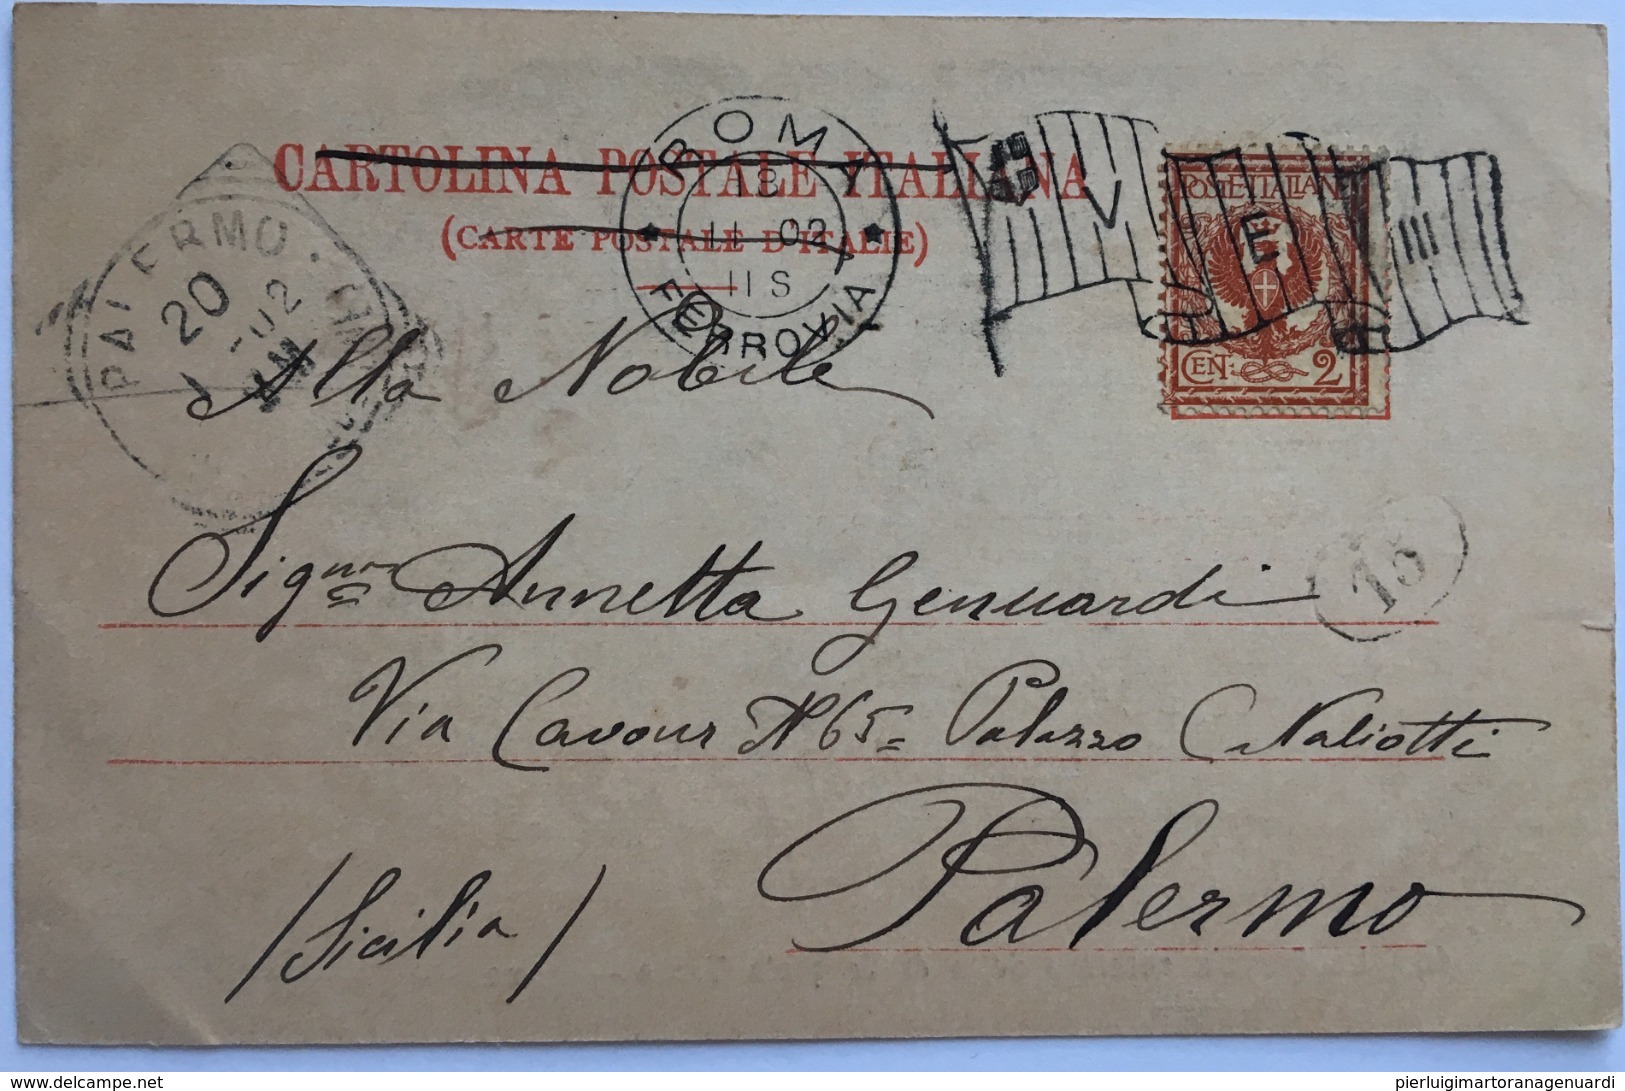 CARTOLINA POSTALE ITALIANA
(CARTE POSTALE D'ITALIE)
ROMA
18
11 02
11 S
FERROVIA
V E III
POSTE ITALIANE
CENT: 2
PALERMO
20
02
Alla Nobile
Sigra Annetta Genuardi
Via Cavour N 65 Palazzo Naliotti
Palermo
/Sicilia/
15
delcampe.net
pierluigimartoranagenuardi